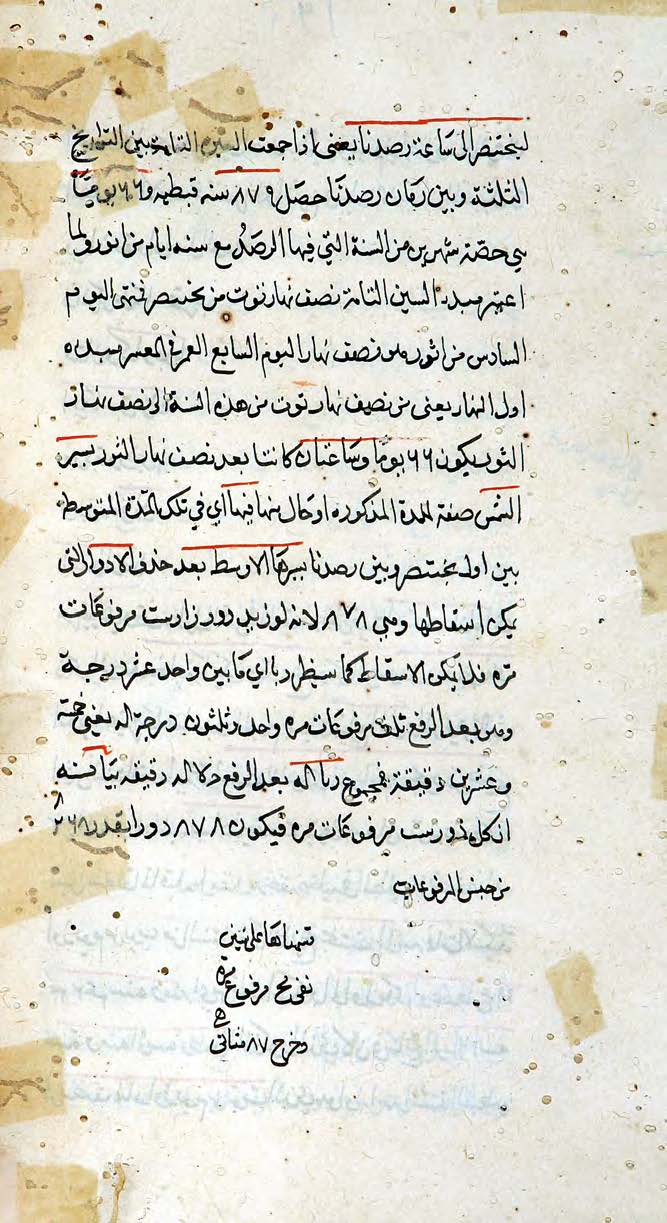 لبختنصر الى ساعة رصدنا يعنى اذا جمعت السيره التامة بين التواريخ
الثلثة وبين زمان رصدنا حصل ٨٧٩ سنه قبطيه و٦٦ يوميا
هي حصة شهرين من السنة التي فيها الرصد مع سته ايام من اثور ولما
اعتبر مبدء السنين التامة نصف نهار توت من بختنصر فنتهى اليوم
السادس من اثور هو نصف نهار اليوم السابع مبدءه
اول النهار يعنى من نصف نهار توت من هذه السنة الى نصف نهار
اثور يكون ٦٦ يوما وساعتان كانتا بعد نصف نهار اثور يسير
الشمس صفة للمدة المذكوره او حال منها فيها اي في تلك المدة المتوسطة
بين اول بختنصر وبين رصدنا بسيرها الاوسط بعد حذف الادوار التى
يمكن اسقاطها وهي ٨٧٨ لانه لو زيد دور زادت مرفوعات
مره فلا يمكن الاسقاط كما سيظهر ربا اي مابين واحد عشر درجة
وهو بعد الرفع ثلث مرفوعات مره واحد وثلثون درجة اله يعنى خمسة
وعشرين دقيقة فمجموع ربا اله بعد الرفع دقيقه بيانه
ان كل دور ست مرفوعات مره فيكون ٨٧٨ دورا بقدر
من جنس المرفوعات
قسمناها على ستين
بقى مرفوع مرة
وخرج ٨٧ مثانى